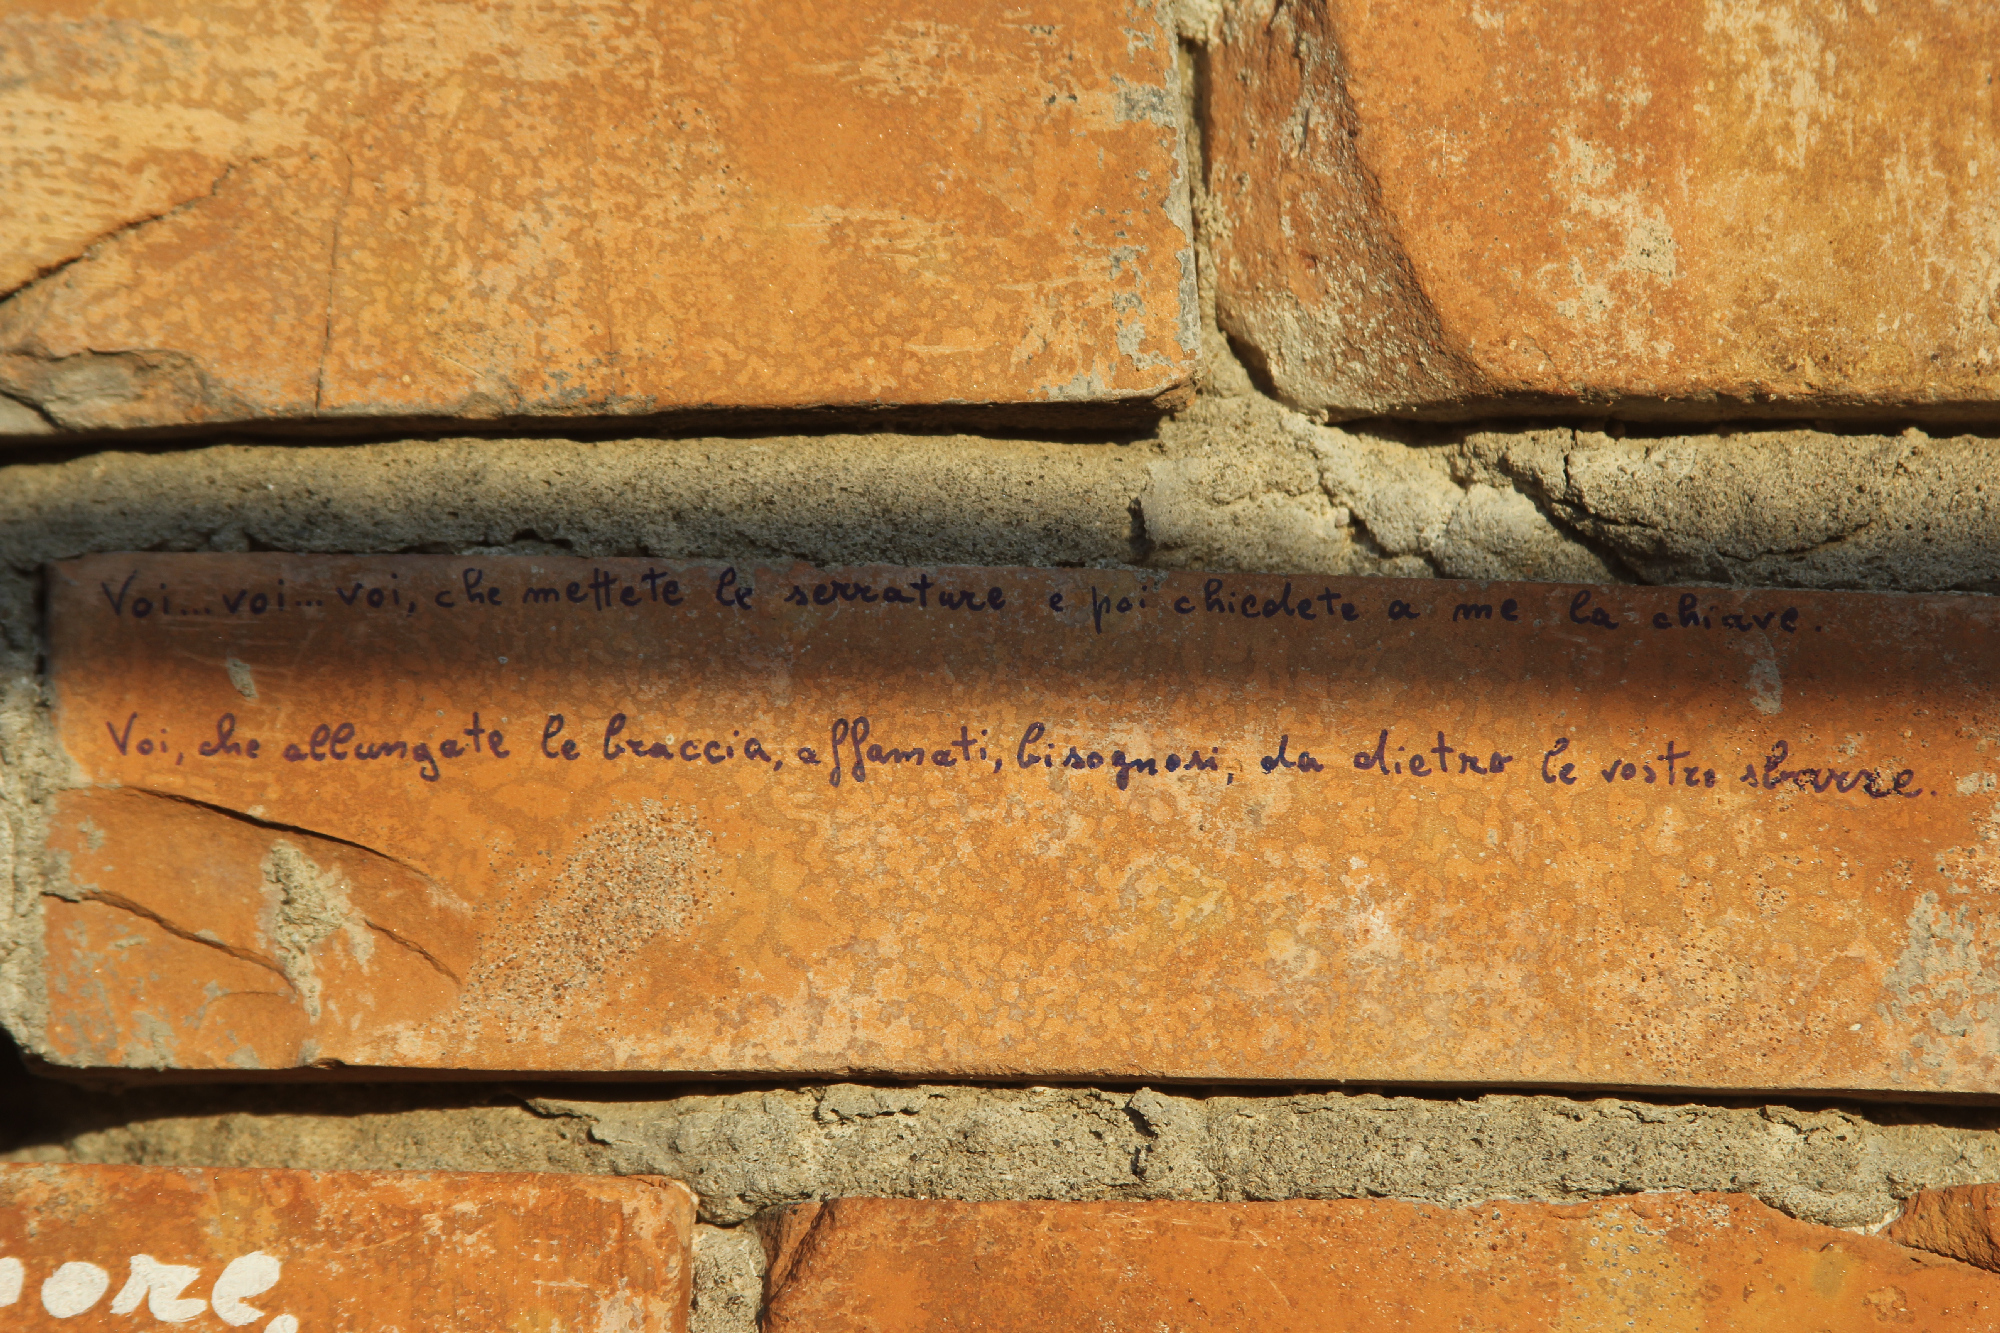 Voi... voi... voi, che mettete le serrature e poi chiedete a me la chiave.
Voi, che allungate le braccia, affamati, bisognosi, da dietro le vostre sbarre.
ore,